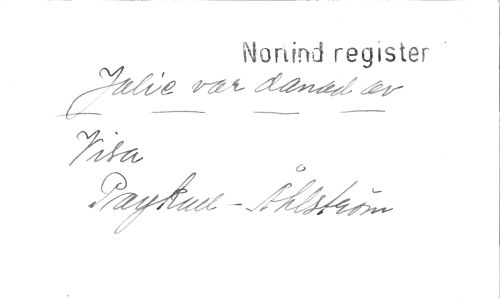 Nonind register
Jalie var danad av
Visa
Paykull - Åhlström